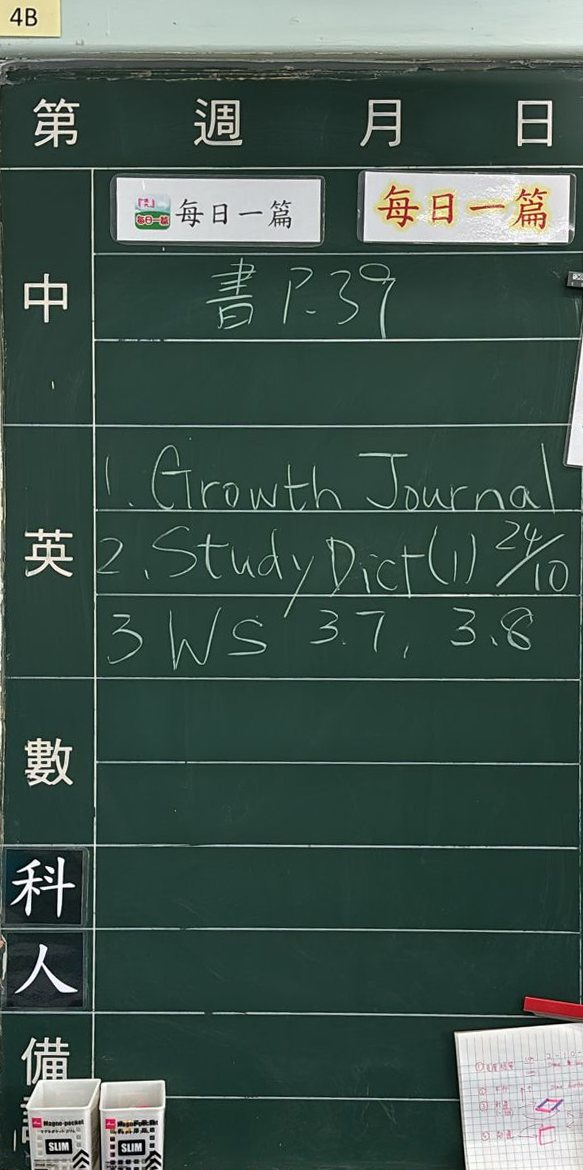 4B
第 週 月 日
每日一篇 每日一篇
中
書 P.39
英
1. Growth Journal
2. Study Dict(1) 24/10
3 WS 3.7, 3.8
數
科
人
備
Magne-pocket
SLIM
SLIM